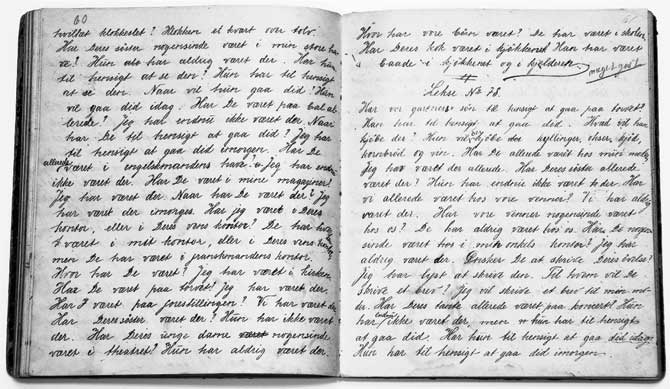 60
hvilket klokkeslet? Klokken et kvart over tolv.
Har Deres søster nogensinde været i min store ha-
ve? Hun har aldrig været der. Har hun
til hensigt at se den? Hun har til hensigt
at se den. Naar vil hun gaa did? Hun
vil gaa did idag. Har De været paa bal al-
lerede? Jeg har endnu ikke været der. Naar
har De til hensigt at gaa did? Jeg har
til hensigt at gaa did imorgen. Har De
allerede
været i engelskmandens have? Jeg har endnu
ikke været der. Har De været i mine magaziner?
Jeg har været der. Naar har De været der? Jeg
har været der imorges. Har jeg været i Deres
kontor, eller i Deres vens kontor? De har hver-
været i mit kontor, eller i Deres vens kontor,
men De har været i franskmandens kontor.
Hvor har De været? Jeg har været i kirken.
Har De været paa torvet? Jeg har været der.
Har I været paa forestillingen? Vi har været der.
Har Deres søster været der? Hun har ikke været
der. Har Deres unge dame nogensinde
været i theatret? Hun har aldrig været der.
61
Hvor har vore været? De har været i skolen.
Har Deres kok været i kjøkkenet? Han har været
baade i kjøkkenet og i kjælderen.
meget godt
Lekse No 75.
Har vor gartners søn til hensigt at gaa paa torvet?
Han har til hensigt at gaa did. Hvad vil han
kjøbe der? Han vil der kyllinger, oksekjød,
kornbrød og vin. Har De allerede været hos min
Jeg har været der allerede. Har Deres søster allerede
været der? Hun har endnu ikke været der. Har
vi allerede været hos vore venner? Vi har aldrig
været der. Har vore venner nogensinde været
hos os? De har aldrig været hos os. Har De nogen-
sinde været hos i min onkels kontor? Jeg har
aldrig været der. Ønsker De at skrive Deres øvelse?
Jeg har lyst at skrive den. Til hvem vil De
skrive et brev? Jeg vil skrive et brev til min mo-
der. Har Deres tante allerede været paa koncert? Hun
endnu
har ikke været der, men hun har til hensigt
at gaa did. Har hun til hensigt at gaa did idag.
Hun har til hensigt at gaa did imorgen.